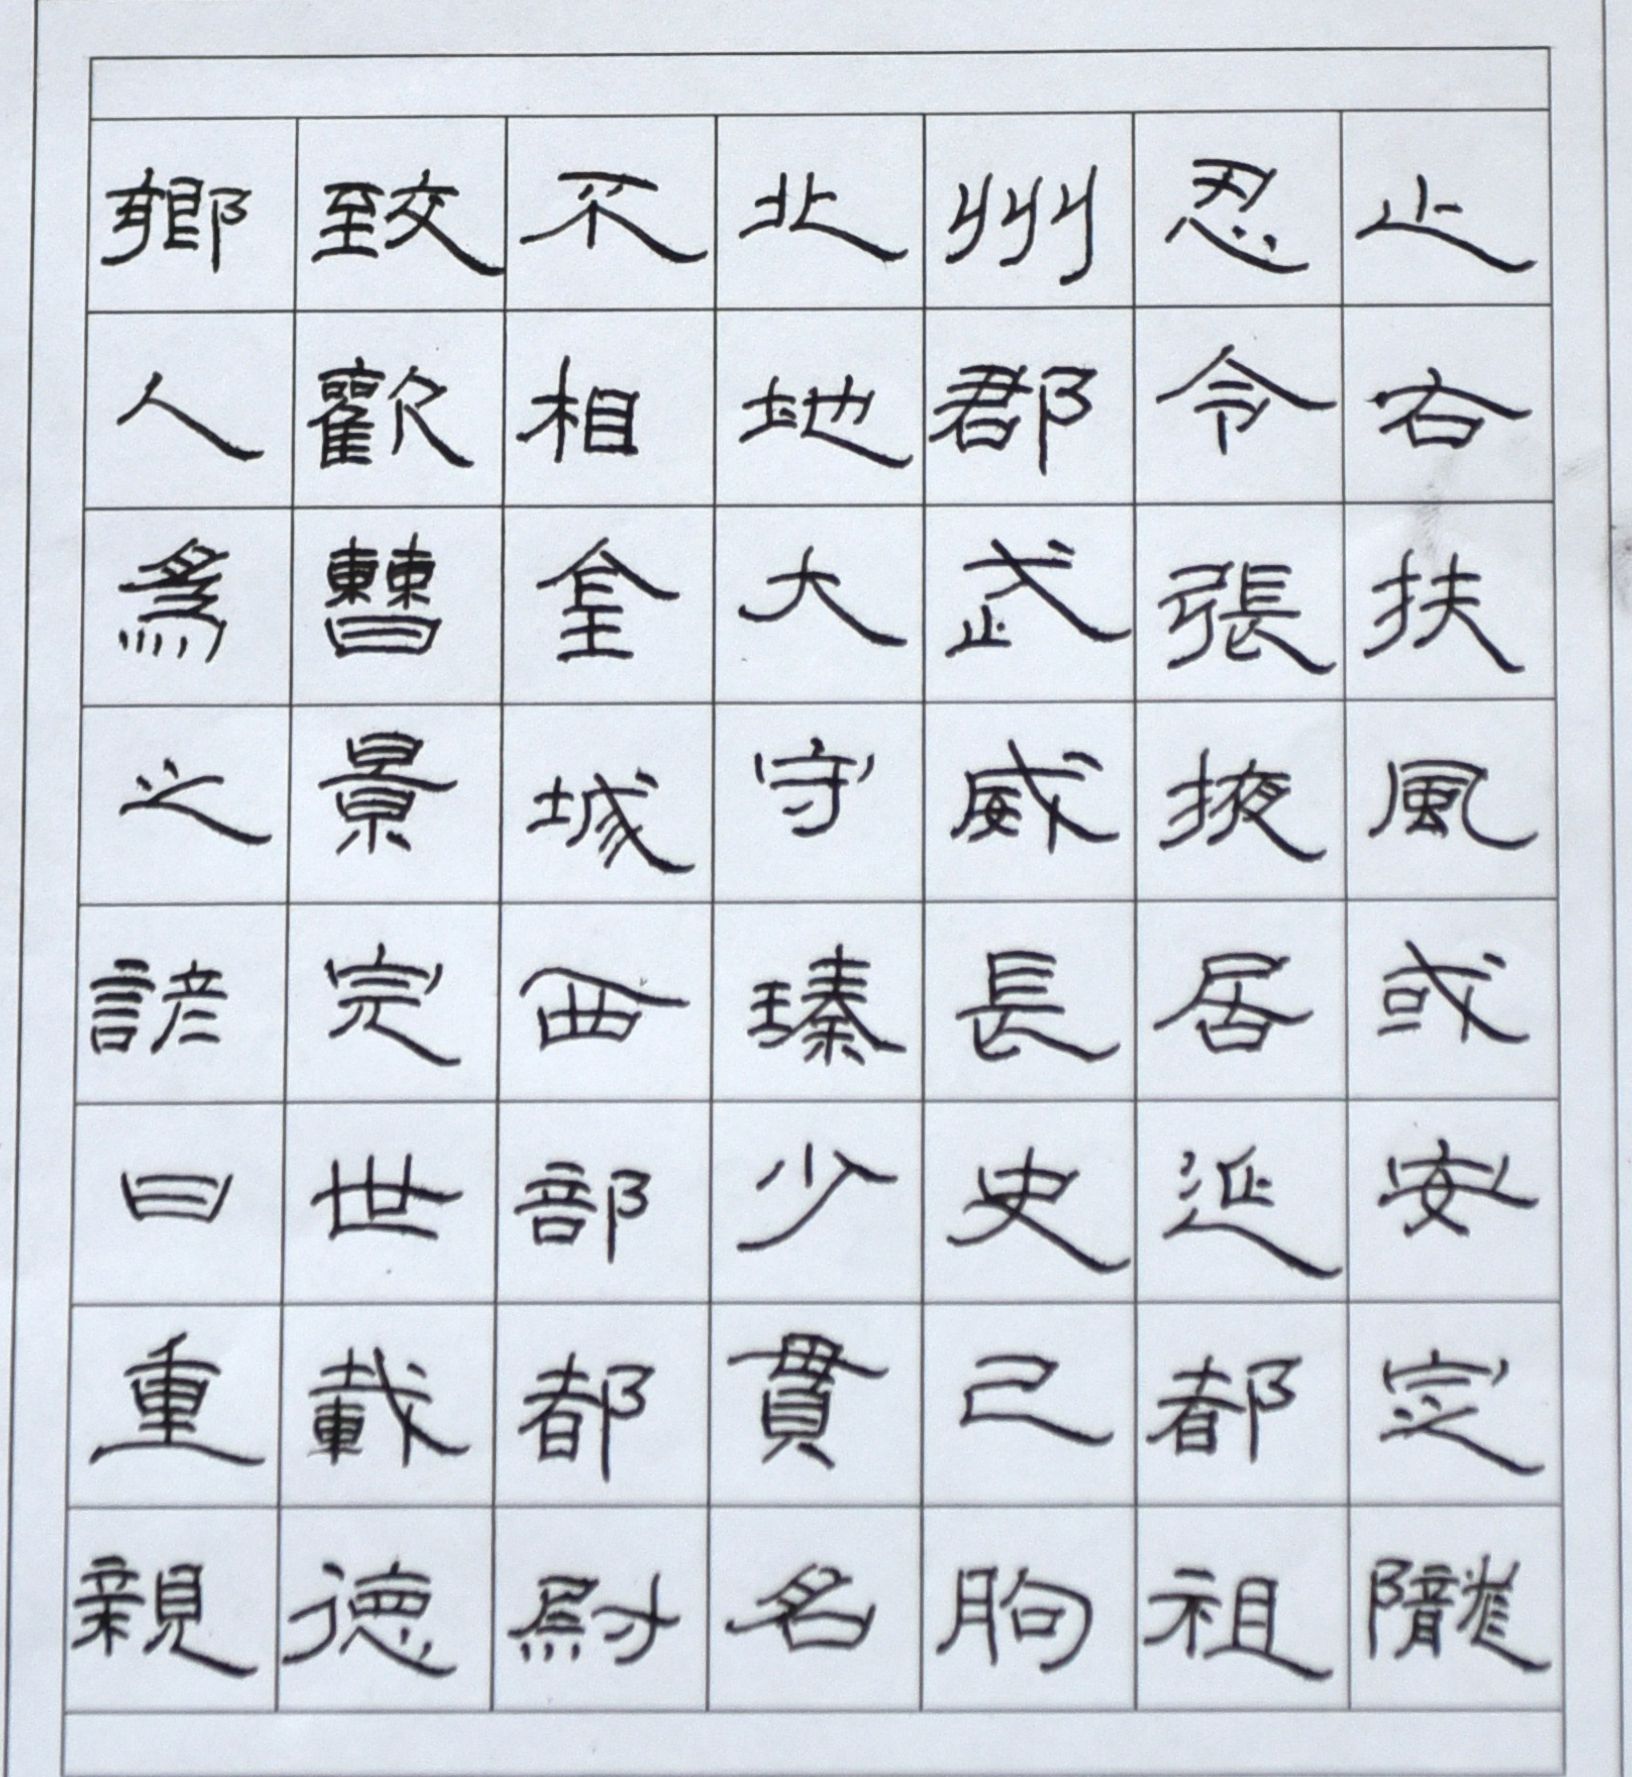 止右扶風或安定隴
忍令張掖居延都祖
州郡武威長史己朐
北地大守瑧少貫名
不相金城西部都尉
致歡曹景完世載德
鄉人爲之諺曰重親